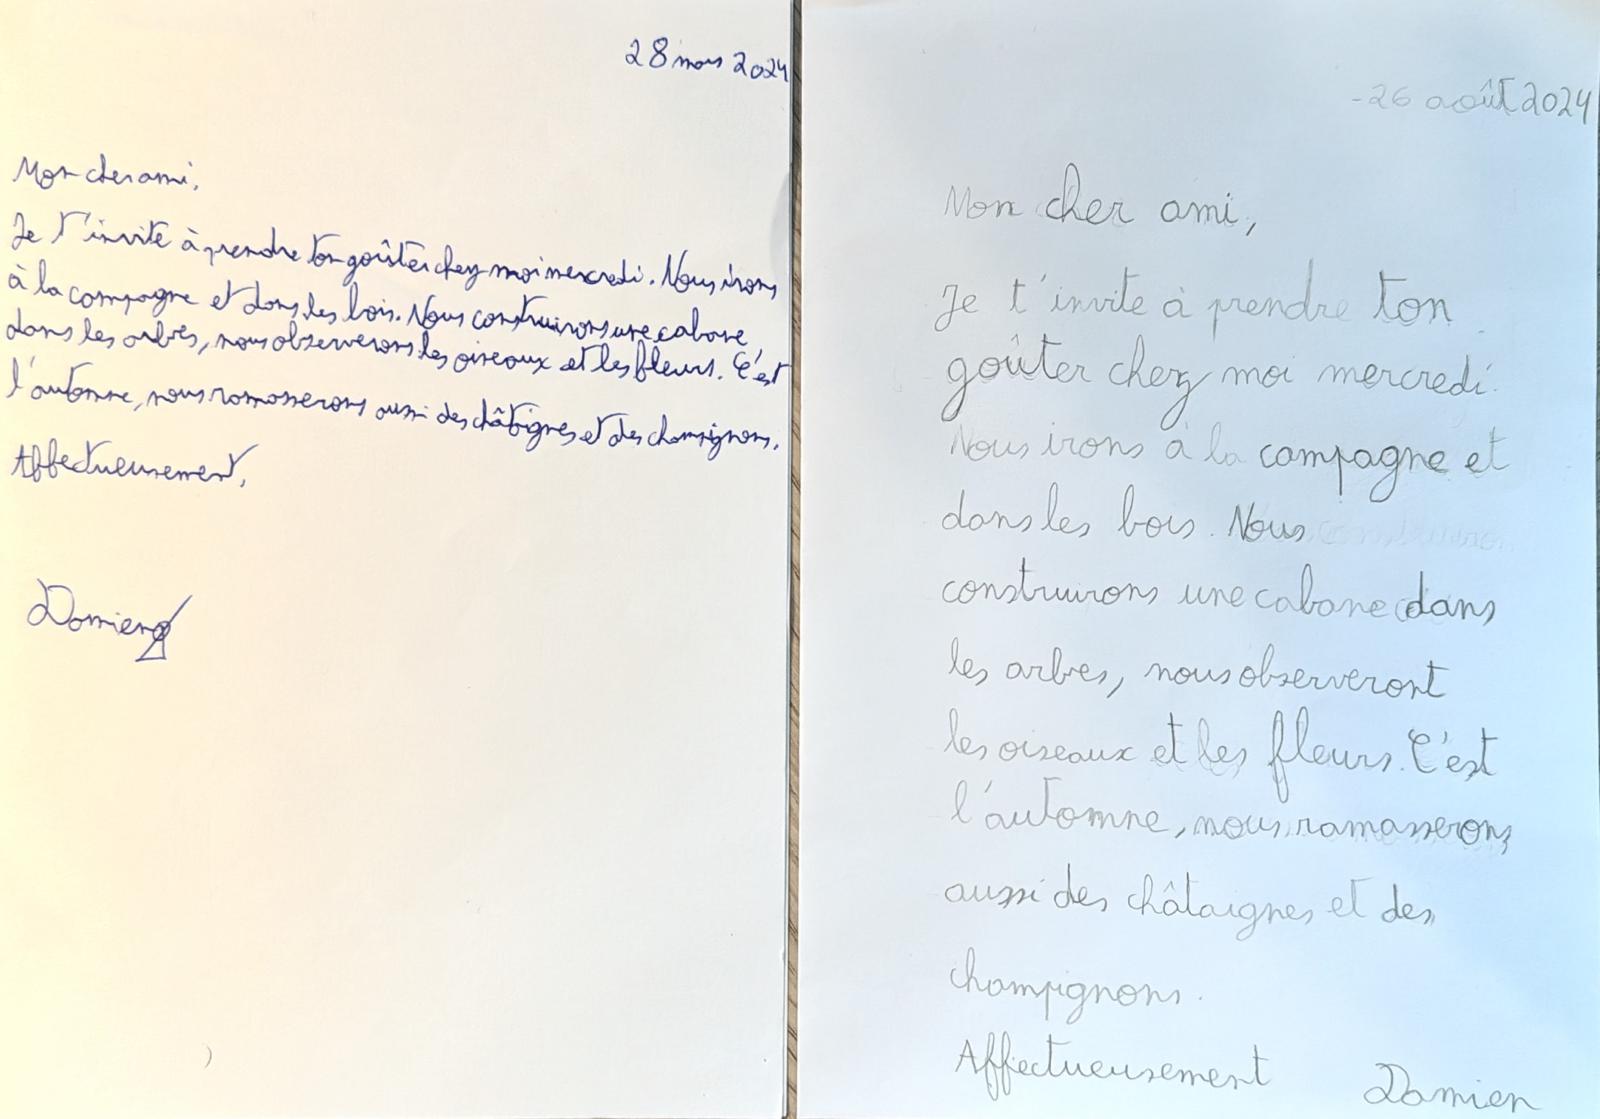 28 mars 2024
Mon cher ami,
Je t'invite à prendre ton goûter chez moi mercredi. Nous irons
à la campagne et dans les bois. Nous construirons une cabane
dans les arbres, nous observerons les oiseaux et les fleurs. C'est
l'automne, nous ramasserons aussi des châtaignes et des champignons.
Affectueusement,
Damien
26 août 2024
Mon cher ami,
Je t'invite à prendre ton
goûter chez moi mercredi.
Nous irons à la campagne et
dans les bois. Nous construiron
construirons une cabane dans
les arbres, nous observeront
les oiseaux et les fleurs. C'est
l'automne, nous ramasserons
aussi des châtaignes et des
champignons.
Affectueusement
Damien